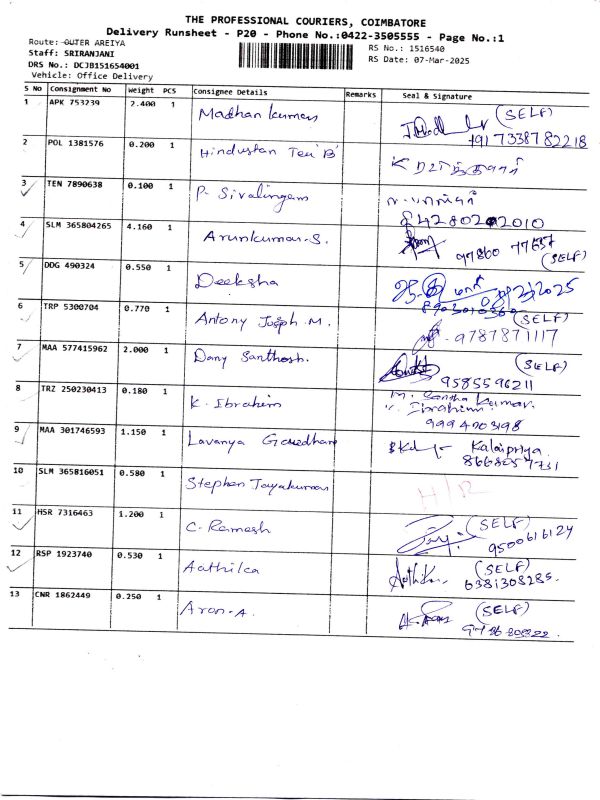 THE PROFESSIONAL COURIERS, COIMBATORE
Delivery Runsheet - P20 - Phone No.:0422-3505555 - Page No.:1
Route: OUTER AREIYA
Staff: SRIRANJANI
DRS No.: DCJB151654001
Vehicle: Office Delivery
RS No.: 1516540
RS Date: 07-Mar-2025
S No Consignment No Weight PCS Consignee Details Remarks Seal & Signature
1 APK 753239 2.400 1 Madhan Kumar (SELF)
+917338782218
2 POL 1381576 0.200 1 Hindustan Tea 'B'
3 TEN 7890638 0.100 1 P. Sivalingam
4 SLM 365804265 4.160 1 Arunkumar.S.
97860 77637
(SELF)
5 DDG 490324 0.550 1 Deeksha
6 TRP 5300704 0.770 1 Antony Joseph M. (SELF)
9787871117
7 MAA 577415962 2.000 1 Dany Santhosh. (SELF)
9585596211
8 TRZ 250230413 0.180 1 K. Ibrahim
K. Ibrahim.
9994203198
9 MAA 301746593 1.150 1 Lavanya Kalaipriya
8668057731
10 SLM 365816051 0.580 1 Stephen Jayakumar H/R
11 HSR 7316463 1.200 1 C. Ramesh (SELF)
9500616124
12 RSP 1923740 0.530 1 Aathika Aathika (SELF)
6381308285.
13 CNR 1862449 0.250 1 Aron.A. (SELF)